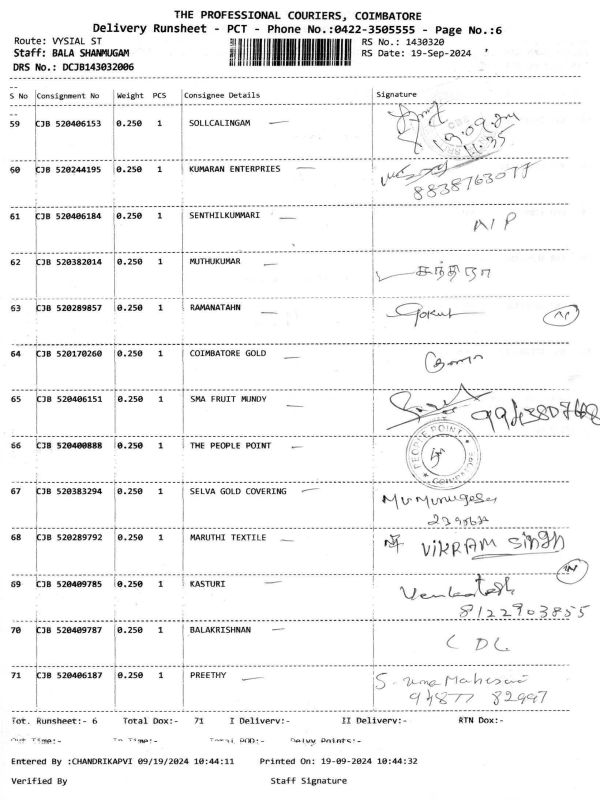 THE PROFESSIONAL COURIERS, COIMBATORE
Delivery Runsheet - PCT - Phone No.:0422-3505555 - Page No.:6
Route: VYSIAL ST RS No.: 1430320
Staff: BALA SHANMUGAM RS Date: 19-Sep-2024
DRS No.: DCJB143032006
S No Consignment No Weight PCS Consignee Details Signature
59 CJB 520406153 0.250 1 SOLLCALINGAM 19.09.24
11.35
60 CJB 520244195 0.250 1 KUMARAN ENTERPRIES
8838763077
61 CJB 520406184 0.250 1 SENTHILKUMMARI A/P
62 CJB 520382014 0.250 1 MUTHUKUMAR
63 CJB 520289857 0.250 1 RAMANATAHN Gokul
64 CJB 520170260 0.250 1 COIMBATORE GOLD
65 CJB 520406151 0.250 1 SMA FRUIT MUNDY
66 CJB 520400888 0.250 1 THE PEOPLE POINT PEOPLE POINT COIMBATORE
67 CJB 520383294 0.250 1 SELVA GOLD COVERING
68 CJB 520289792 0.250 1 MARUTHI TEXTILE VIKRAM Singh
69 CJB 520409785 0.250 1 KASTURI Venkatesh
8122903855
70 CJB 520409787 0.250 1 BALAKRISHNAN CDL
71 CJB 520406187 0.250 1 PREETHY S. Uma Maheswari
94877 82997
Tot. Runsheet:- 6 Total Dox:- 71 I Delivery:- II Delivery:- RTN Dox:-
Out Time:- In Time:- Total POD:- Delvy Points:-
Entered By :CHANDRIKAPVI 09/19/2024 10:44:11 Printed On: 19-09-2024 10:44:32
Verified By Staff Signature